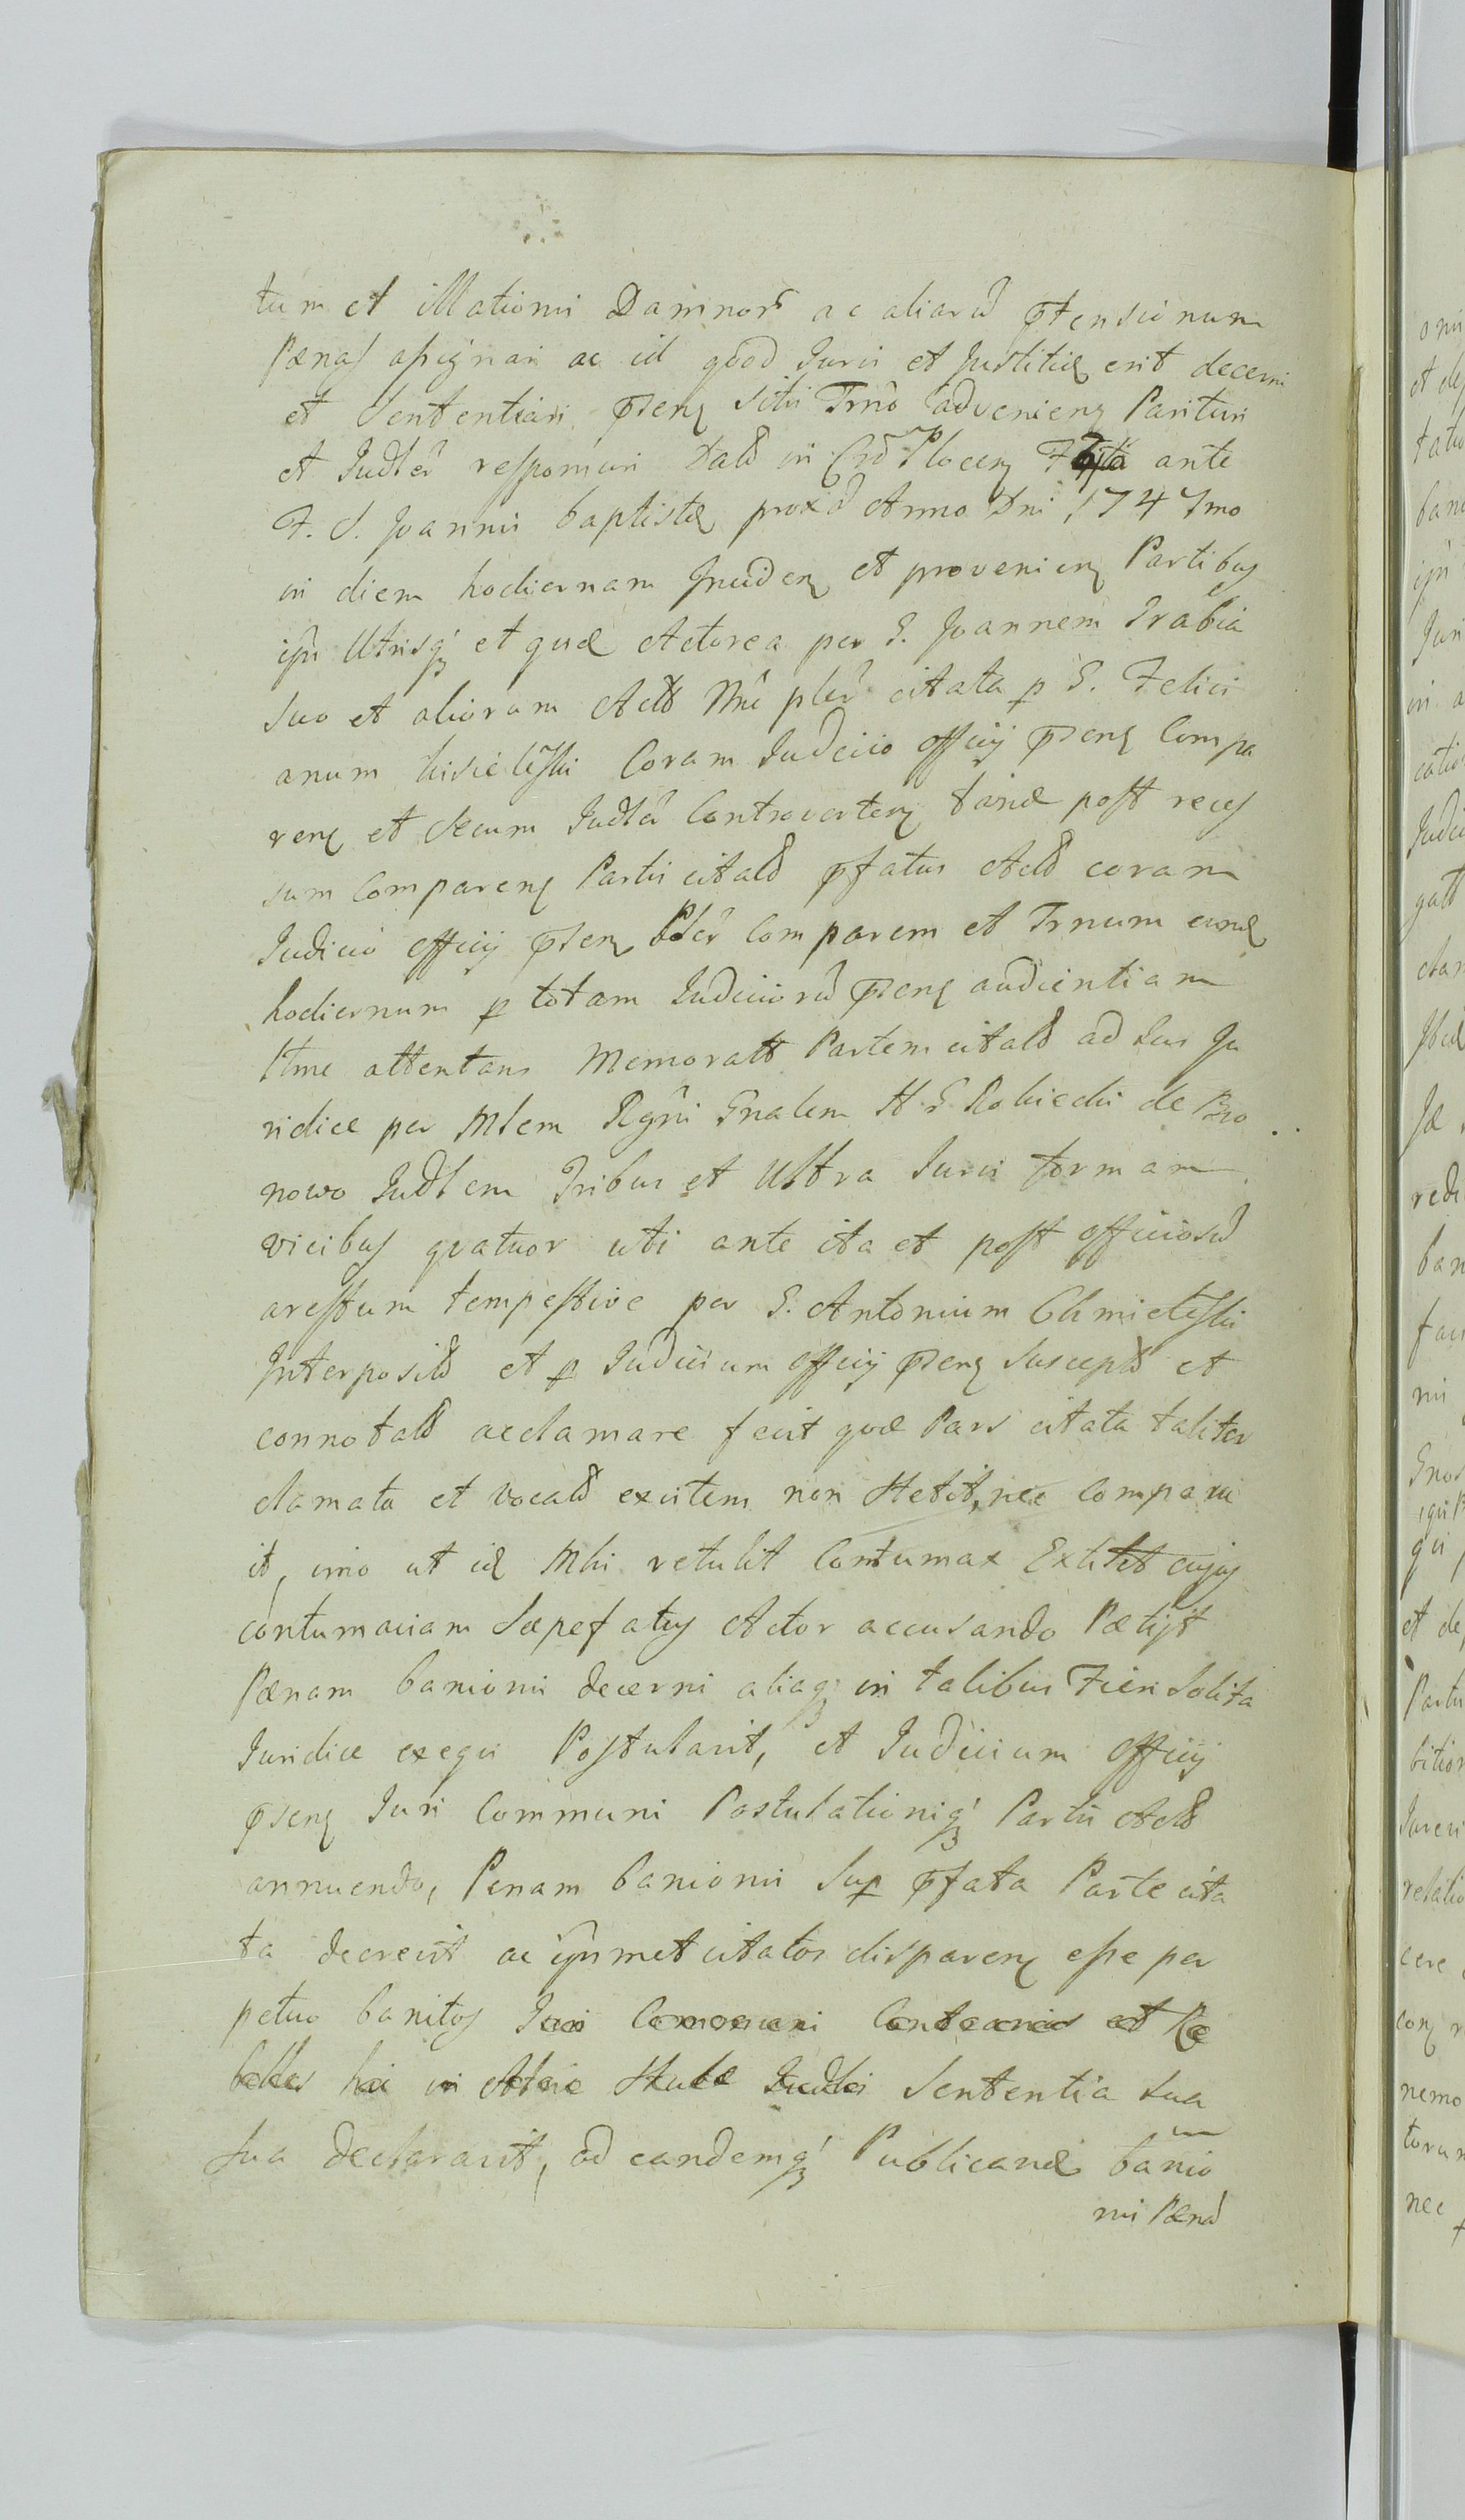 tum et illationis Damnor ac aliarũ Ptensionum
Pænas assignari ac id qƺod Juris et Justitiæ erit decerni
et Sententiari Psenꝫ Citis Trno advenienꝫ Parituri
et Judlẽr responsuri Datt in Crõ Plocenꝫ ante
F. S. Joannis Baptistæ proxã Anno Dni 1747mo
in diem hodiernam Inciden et provenien Partibus
ipsis Utrisq et quæ Actorea per G. Joannem Grabia
suo et aliorum Actt Nnẽ plẽr citata p G. Felici
anum Kisielẽski Coram Judicio Officij Psenꝫ Compa
renꝫ et Secum Judlẽr Controvertenꝫ tandẽ post reces
sum Comparenꝫ Partis citatt Pfatus Actt coram
Judicio Officij Psenꝫ Plẽr Comparem et Trnum eundẽ
hodiernum p totam Judiciorũ Psenꝫ audientiam
ltme attentans Memoratt Partem citatt ad Jus Ju
ridice per Mlem Regni Gnalem H. G. Rokicki de Bro
nowo Judlem Tribus et Ultra Juris formam
vicibus quatuor uti ante ita et post officiosũ
arestum tempestive per G. Antonium Chmielẽski
Interpositt et p Judicium Officij Psenꝫ Susceptt et
connotatt acclamare fecit quæ Pars citata taliter
clamata et Vocatt exitem non Stetit, nec Comparu
it, imo ut idẽ Mlis retulit Contumax Extitit cujus
contumaciam Sæpefatus Actor accusando Pætijt
Pænam banionis decerni aliaq in talibus Fieri Solita
Juridice exequi Postularit, et Judicium Officij
Psenꝫ Juri Communi Postulationiq Partis Actt
annuendo, Penam banionis Sup Pfata Parte cita
ta decrevit ac ipsmet citatos disparenꝫ esse per
petuo banitos Juri Communi Contrarios et Re
belles hac in Actu Judlẽi Sententia sua
sua declaravit, ad eandemq Publicandã banio
nis Pænã